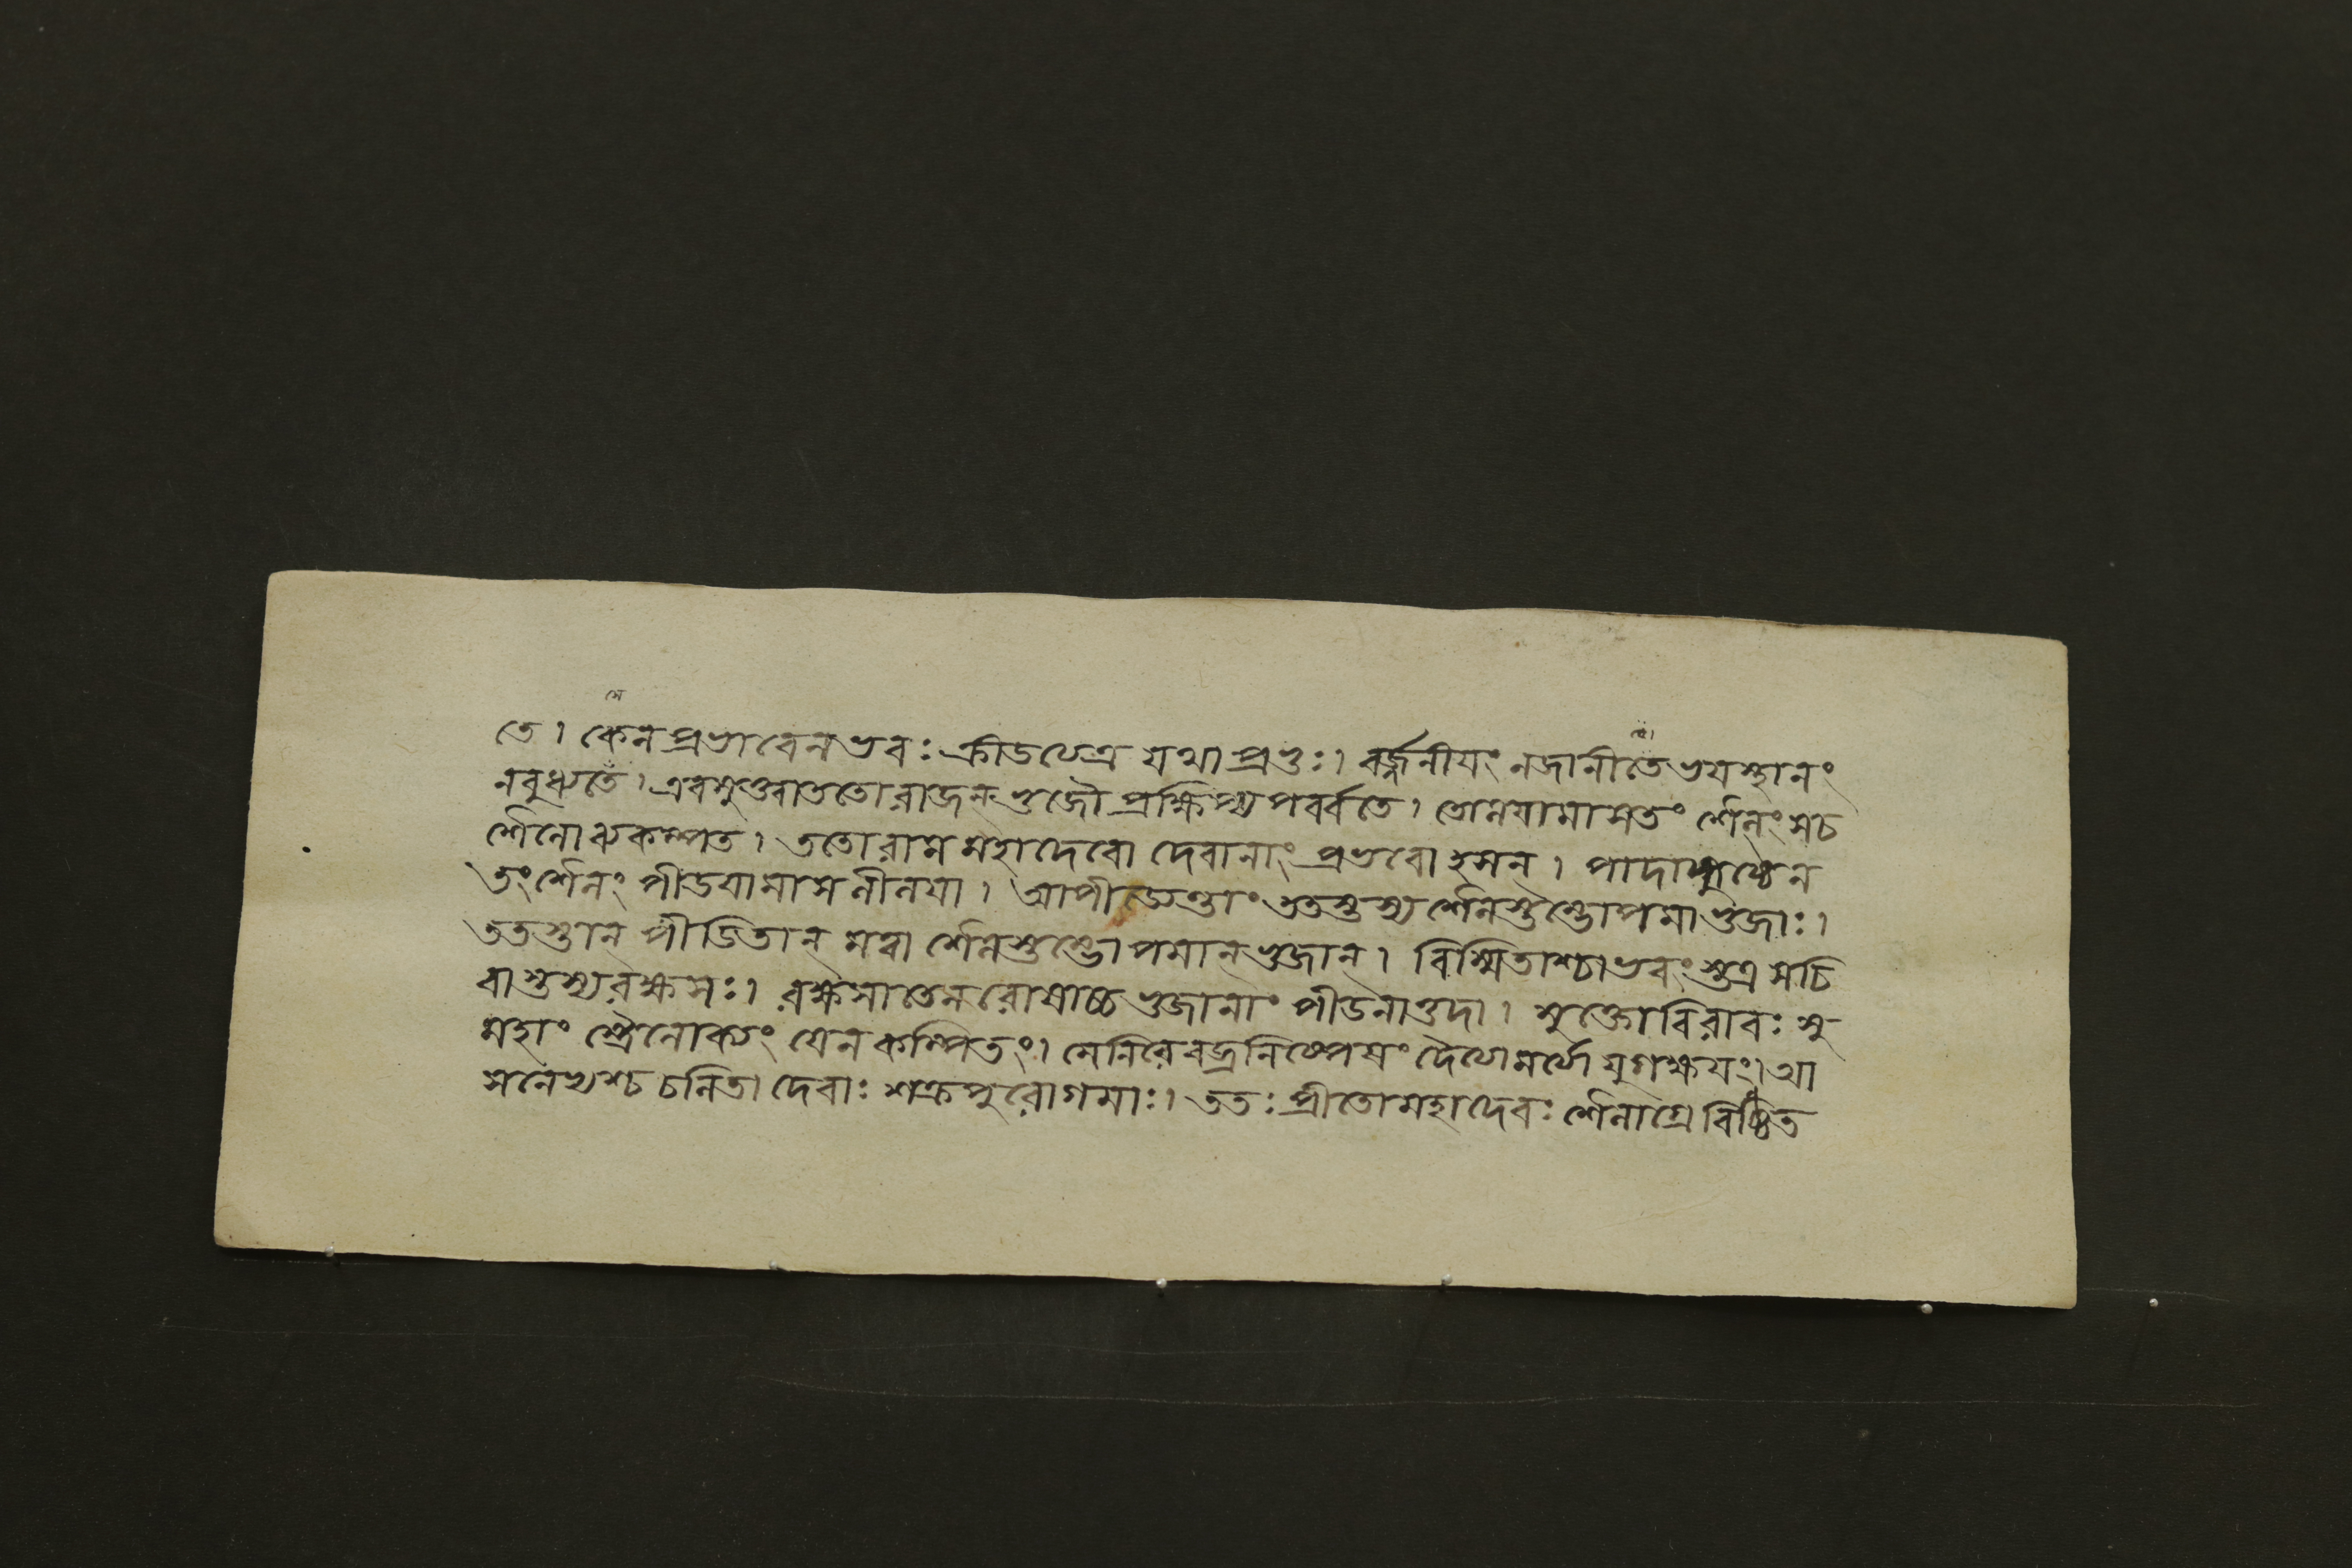 তে। কেনপ্রভাবেনভবঃ ক্রীডতেত্র যথাপ্রভুঃ। বর্জ্জনীযং নজানীতেভযস্থানং
নবুধ্যতে। এবমুক্ত্বাততোরাজন্ভুজৌ প্রক্ষিপ্য পর্ব্বতে। তোলযামাসতং শৈলং সচ
শৈলোব্যকম্পত। ততোরামমহাদেবো দেবানাং প্রভবোহসন্। পাদাঙ্গুষ্ঠেন
তংশৈলং পীডযামাসলীলযা। আপীড্যন্তাং ততস্তস্যশৈলস্তম্ভোপমাভুজাঃ।
ততস্তান্ পীডিতান্ মত্বা শৈলস্তম্ভোপমান্ভুজান্। বিস্মিতাশ্চাভবংস্তত্রসচি
বাস্তস্যরক্ষসঃ। রক্ষসাতেনরোষাচ্চভুজানাং পীডনাত্তদা। মুক্তোবিরাবঃ সু
মহাংস্ত্রৈলোক্যং যেনকম্পিতং। মেনিরেবজ্রনিষ্পেষং যুগক্ষযং। আ
সনেভ্যশ্চ চলিতা দেবাঃ শক্রপুরোগমাঃ। ততঃ প্রীতোমহাদেবঃ শৈলাগ্রেবিষ্ঠিত